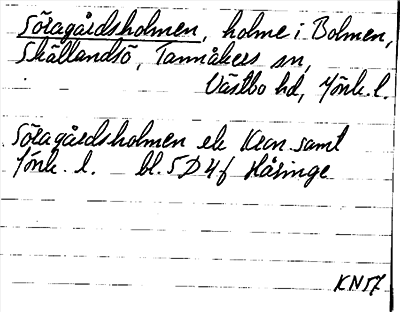 Söragårdsholmen, holme i Bolmen,
Skällandsö, Tannåkers sn,
Västbo hd, Jönk. l.
Söragårdsholmen ek Kron. samt
Jönk. l. bl. 5D4f Håringe
KN57